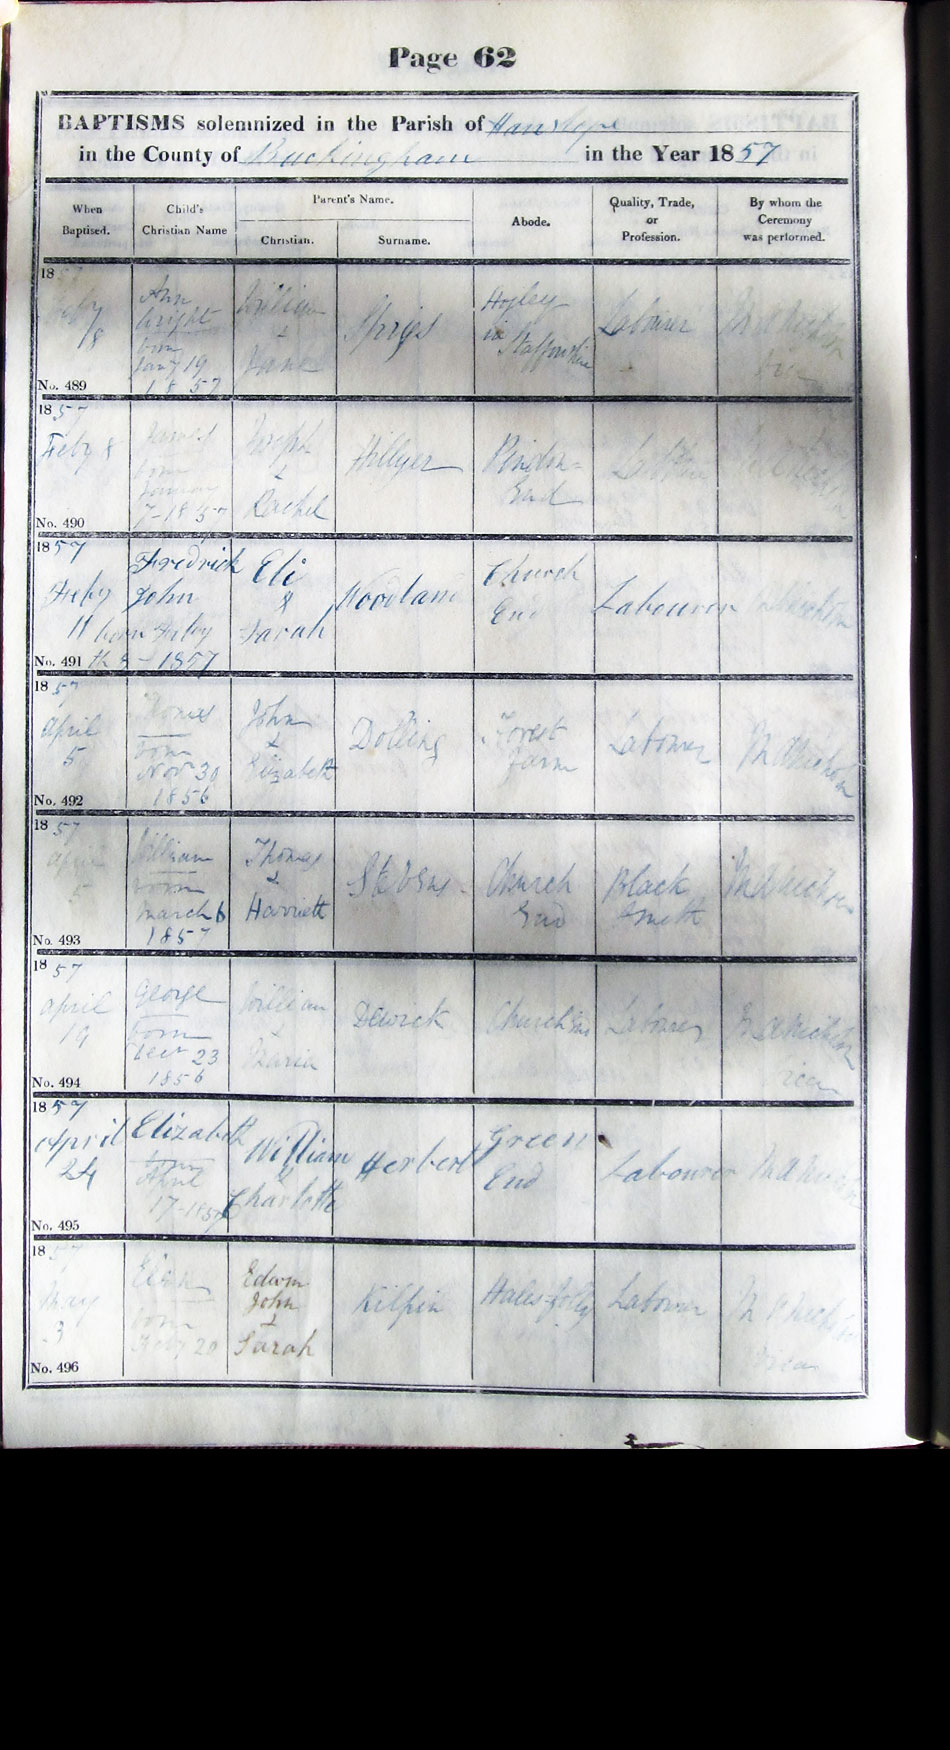 Page 62
BAPTISMS solemnized in the Parish of Hanslope
in the County of Buckingham in the Year 1857
When Baptised.
Child's Christian Name
Parent's Name.
Christian.
Surname.
Abode.
Quality, Trade, or Profession.
By whom the Ceremony was performed.
18
Feby
8
Ann
Wright
born
Jany 19
1857
William
&
Jane
Spriggs
in
Staffordshire
Labourer
No. 489
1857
Feby 8
James
born
7-1857
Joseph
&
Rachel
Hillyer
End
No. 490
1857
Feby
11
Fredrick
John
born Feby
th 8-1857
Eli
&
Sarah
Woodland
Church
End
Labourer
No. 491
1857
April
5
Thomas
born
Novr 30
1856
John
&
Elizabeth
Dolling
Forest
Farm
Labourer
No. 492
1857
April
5
William
born
March 6
1857
Thomas
&
Harriett
Stevens
Church
End
Black
Smith
No. 493
1857
April
19
George
born
23
1856
William
&
Maria
Dewick
Church End
Labourer
No. 494
1857
April
24
Elizabeth
born
April
17-1857
William
&
Charlotte
Herbert
Green
End
Labourer
No. 495
1857
May
3
born
Feby 20
Edwin
John
&
Sarah
Kilpin
Hales Folly
Labourer
No. 496